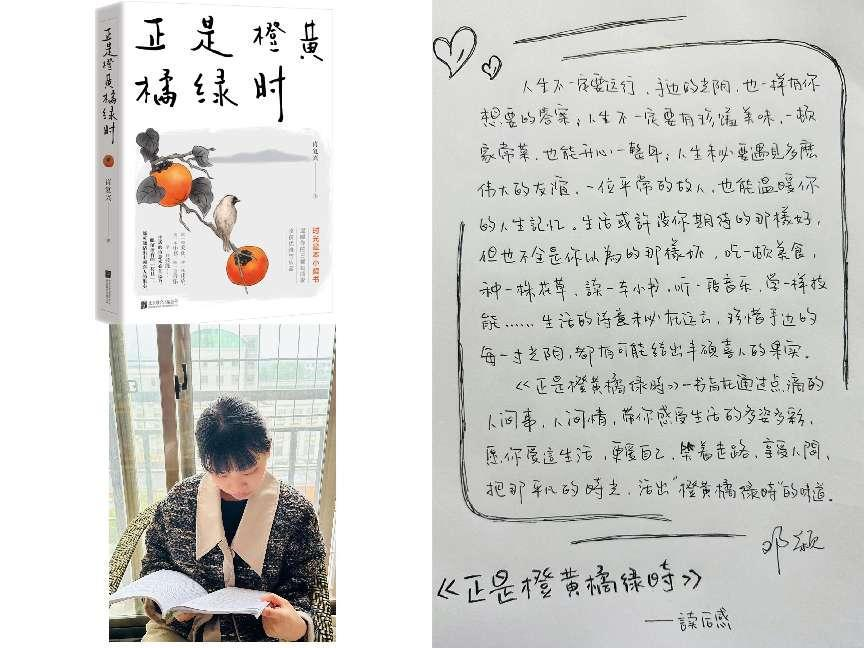 正是橙黄
橘绿时
肖复兴
正是橙黄橘绿时
肖复兴
人生不一定要远行，手边的光阴，也一样有你
想要的答案；人生不一定要有珍馐美味，一顿
家常菜，也能开心一整年；人生未必要遇見多麽
伟大的友誼，一位平常的故人，也能温暖你
的人生記忆。生活或許没你期待的那樣好，
但也不全是你认为的那樣坏，吃一顿美食，
种一株花草，読一本小书，听一段音乐，学一样技
能……生活的诗意未必在远方，珍惜手边的
每一寸光阴，都有可能结出丰硕喜人的果实。
《正是橙黄橘绿時》一书旨在通过点滴的
人间事，人间情，带你感受生活的多姿多彩，
愿你爱這生活，更爱自己，笑着走路，享受人間，
把那平凡的時光，活出“橙黄橘绿時”的味道。
邓颖
《正是橙黄橘绿時》
——読后感